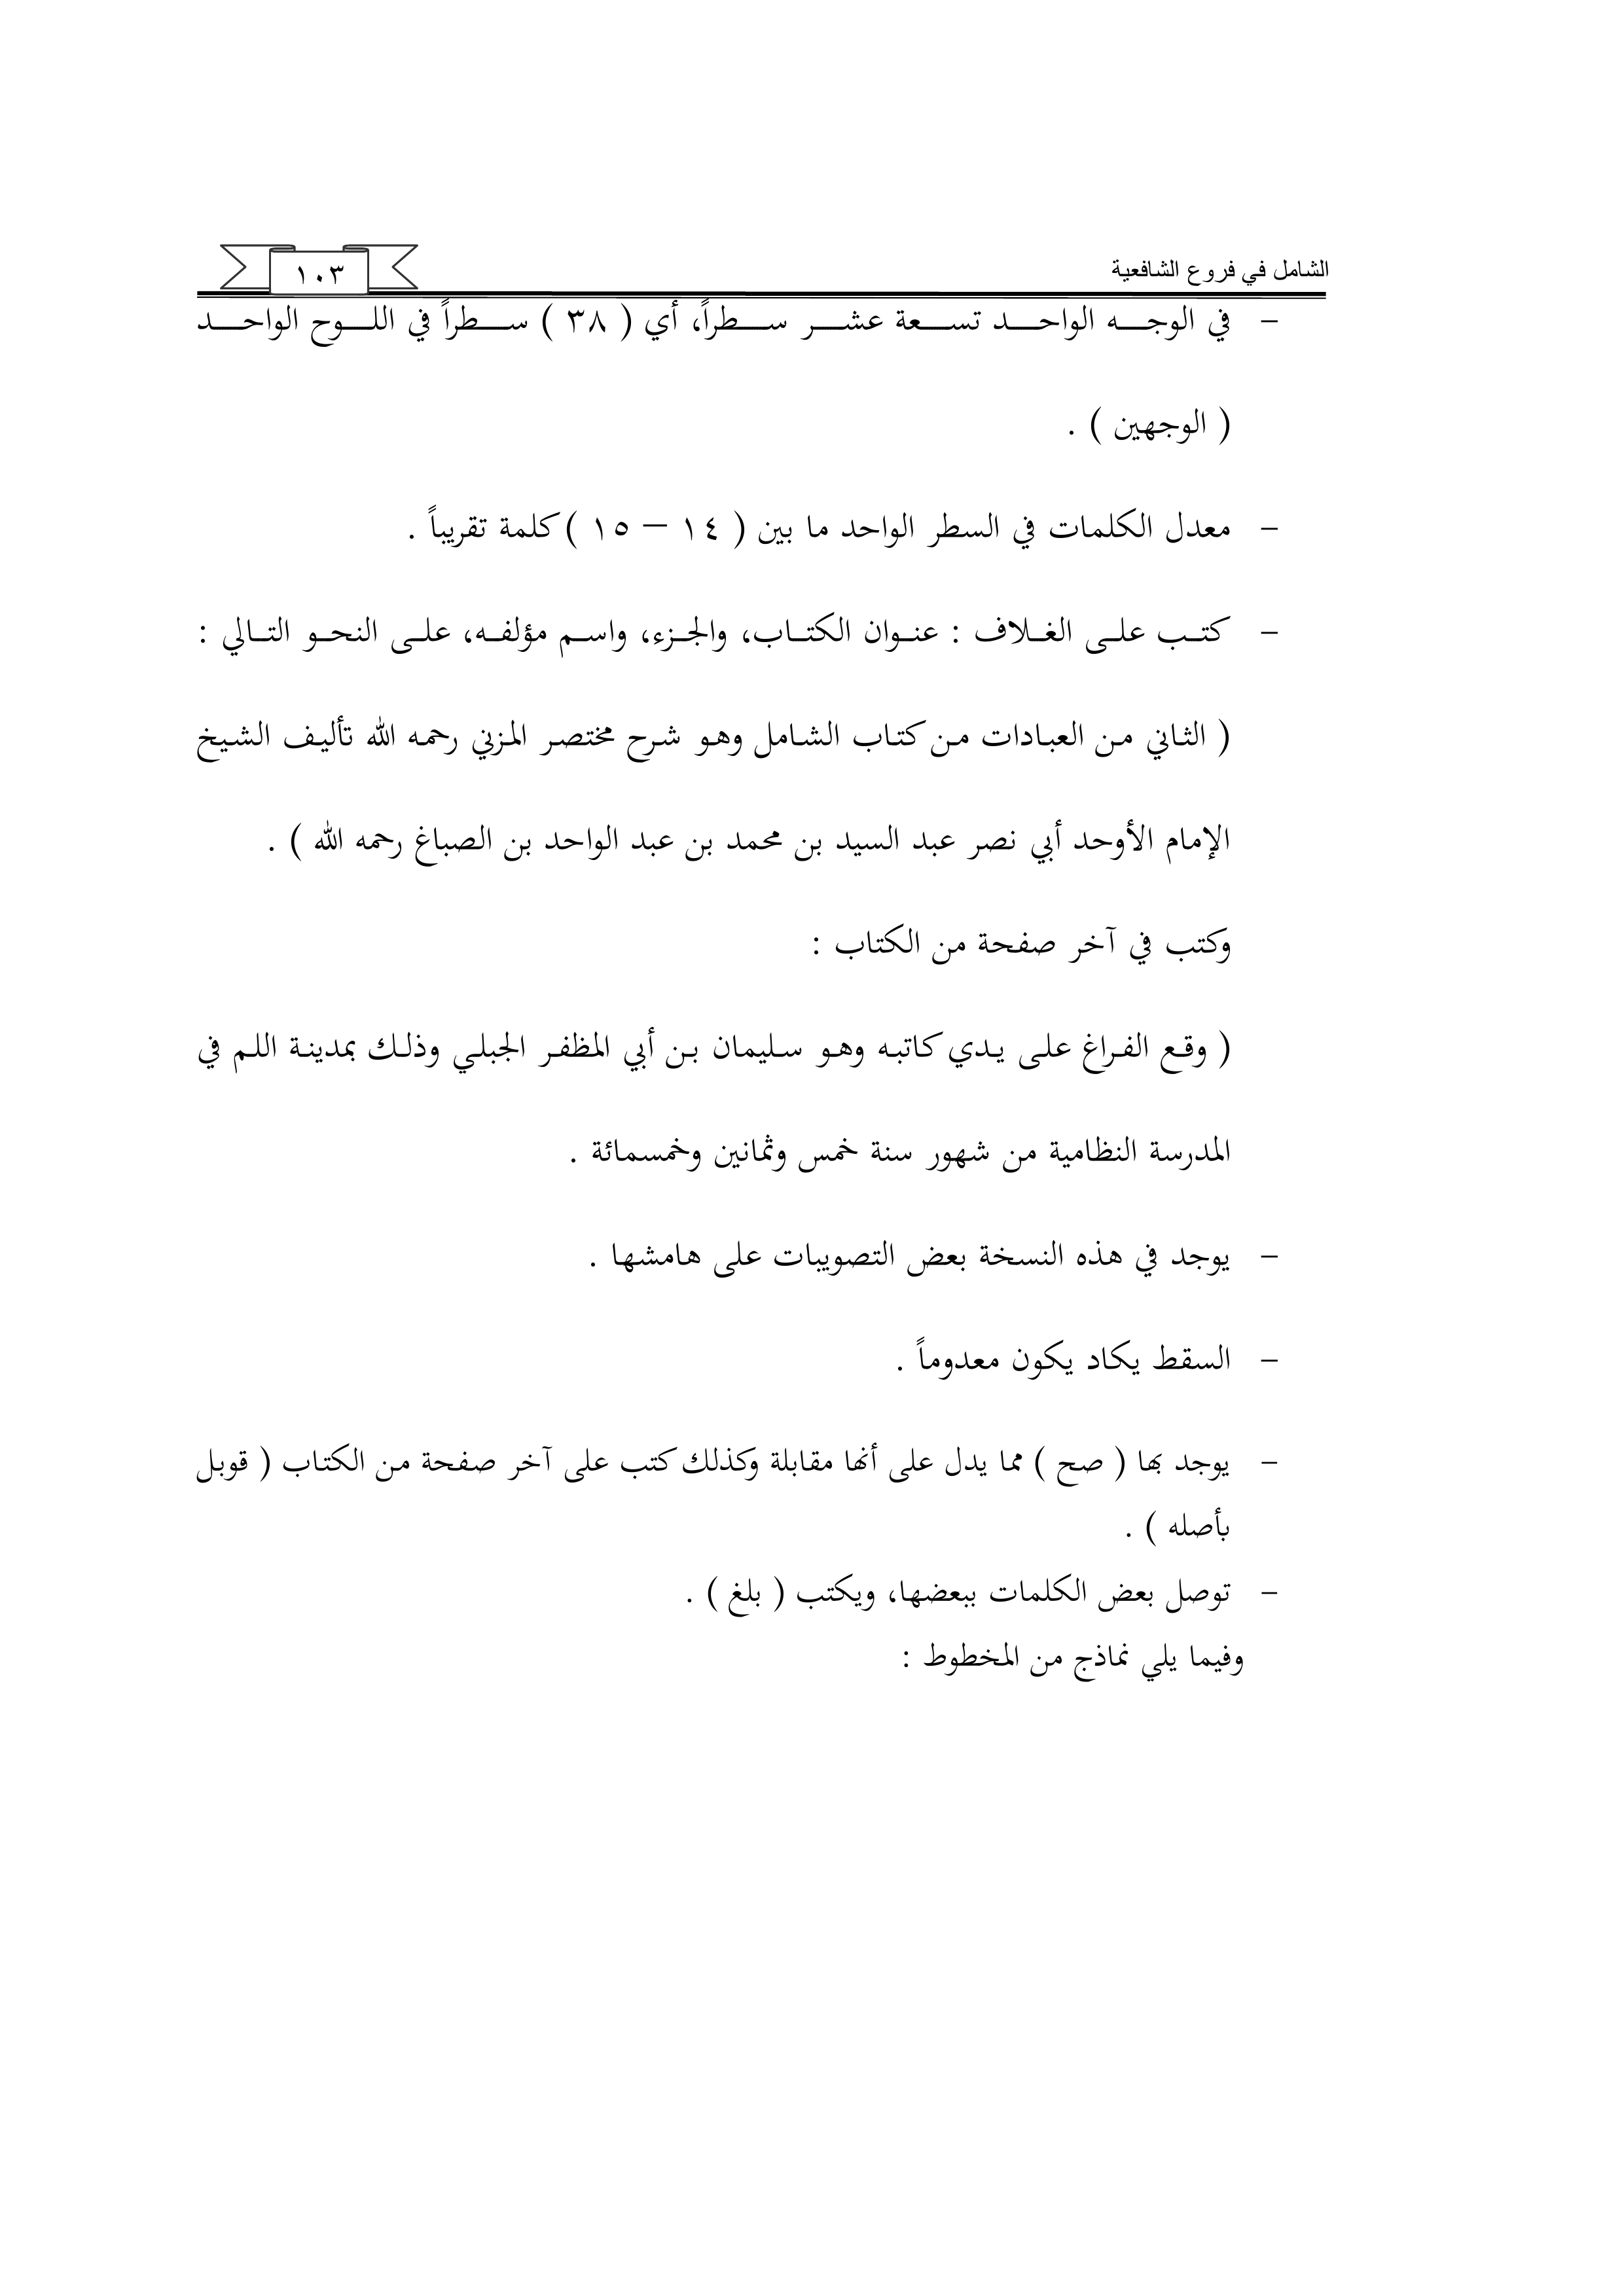 الشامل في فروع الشافعية
١٠٣
- في الوجه الواحد تسعة عشر سطراً، أي ( ٣٨ ) سطراً في اللوح الواحد
( الوجهين ) .
- معدل الكلمات في السطر الواحد ما بين ( ١٤ – ١٥ ) كلمة تقريباً .
- كتب على الغلاف : عنوان الكتاب، والجزء، واسم مؤلفه، على النحو التالي :
( الثاني من العبادات من كتاب الشامل وهو شرح مختصر المزني رحمه الله تأليف الشيخ
الإمام الأوحد أبي نصر عبد السيد بن محمد بن عبد الواحد بن الصباغ رحمه الله ) .
وكتب في آخر صفحة من الكتاب :
( وقع الفراغ على يدي كاتبه وهو سليمان بن أبي المظفر الجبلي وذلك بمدينة اللم في
المدرسة النظامية من شهور سنة خمس وثمانين وخمسمائة .
- يوجد في هذه النسخة بعض التصويبات على هامشها .
- السقط يكاد يكون معدوماً .
- يوجد بها ( صح ) مما يدل على أنها مقابلة وكذلك كتب على آخر صفحة من الكتاب ( قوبل
بأصله ) .
- توصل بعض الكلمات ببعضها، ويكتب ( بلغ ) .
وفيما يلي نماذج من المخطوط :